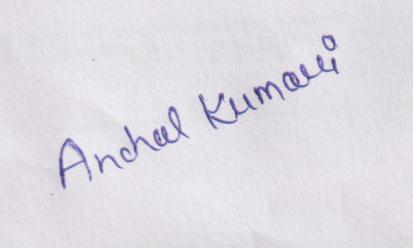 Anchal Kumari